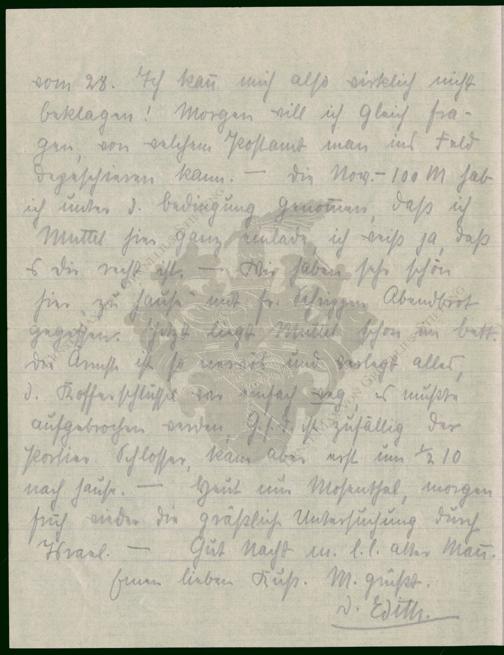 vom 28. Ich kan̄ mich also wirklich nicht
beklagen! Morgen will ich gleich fra-
gen, von welchem Postamt man ins Feld
depeschieren kann. — Die Nov.-100 M hab
ich unter d. Bedingung genom̄en, daß ich
Muttel hier ganz einlade, ich weiß ja, daß
es Dir recht ist. — Wir haben sehr schön
hier, zu Hause mit Fr. Abendbrot
gegessen. Jetzt liegt Muttel schon im Bett.
Die Ärmste ist so nervös und verlegt alles,
d. Kofferschlüssel war einfach weg, es mußte
aufgebrochen werden, G. s. d. ist zufällig der
Portier Schlosser, kam aber erst um ½ 10
nach Hause. — Heut nun Mosenthal, morgen
früh wieder die gräßliche Untersuchung durch
Israel. — Gut Nacht m. l. l. alter Man̄.
Einen lieben Kuß. M. grüßt.
D. Edith.